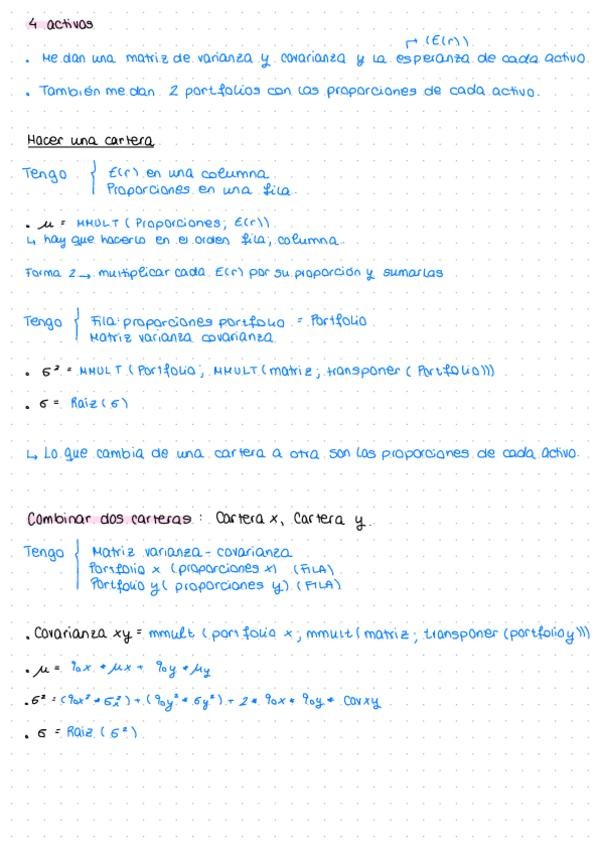 4 activos
→ (E(r))
• Me dan una matriz de varianza y covarianza y la esperanza de cada activo.
• También me dan 2 portfolios con las proporciones de cada activo.
Hacer una cartera
Tengo { E(r) en una columna.
Proporciones en una fila.
• μ = MMULT (Proporciones; E(r))
↳ hay que hacerlo en el orden fila; columna.
Forma 2 → multiplicar cada E(r) por su proporción y sumarlas
Tengo { Fila: proporciones portfolio = Portfolio
Matriz varianza covarianza
• σ² = MMULT (Portfolio; MMULT (matriz; transponer (Portfolio)))
• σ = Raiz (σ)
↳ Lo que cambia de una cartera a otra son las proporciones de cada activo.
Combinar dos carteras: Cartera x, Cartera y.
Tengo { Matriz varianza - covarianza
Portfolio x (proporciones x) (FILA)
Portfolio y (proporciones y) (FILA)
• Covarianza xy = mmult (portfolio x; mmult (matriz; transponer (portfolio y)))
• μ = %x * μx + %y * μy
• σ² = (%x² * σx²) + (%y² * σy²) + 2 * %x * %y * Cov xy
• σ = Raiz (σ²)